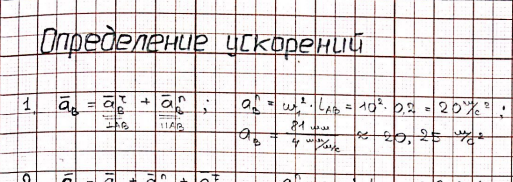 Определение ускорений
1. a̅_B = a̅_B^τ + a̅_B^n ; a_B^n = ω_1² · l_AB = 10² · 0,2 = 20 м/с² ;
⊥AB ||AB
a_B = 81 мм / 4 мм/м/с² ≈ 20,25 м/с²